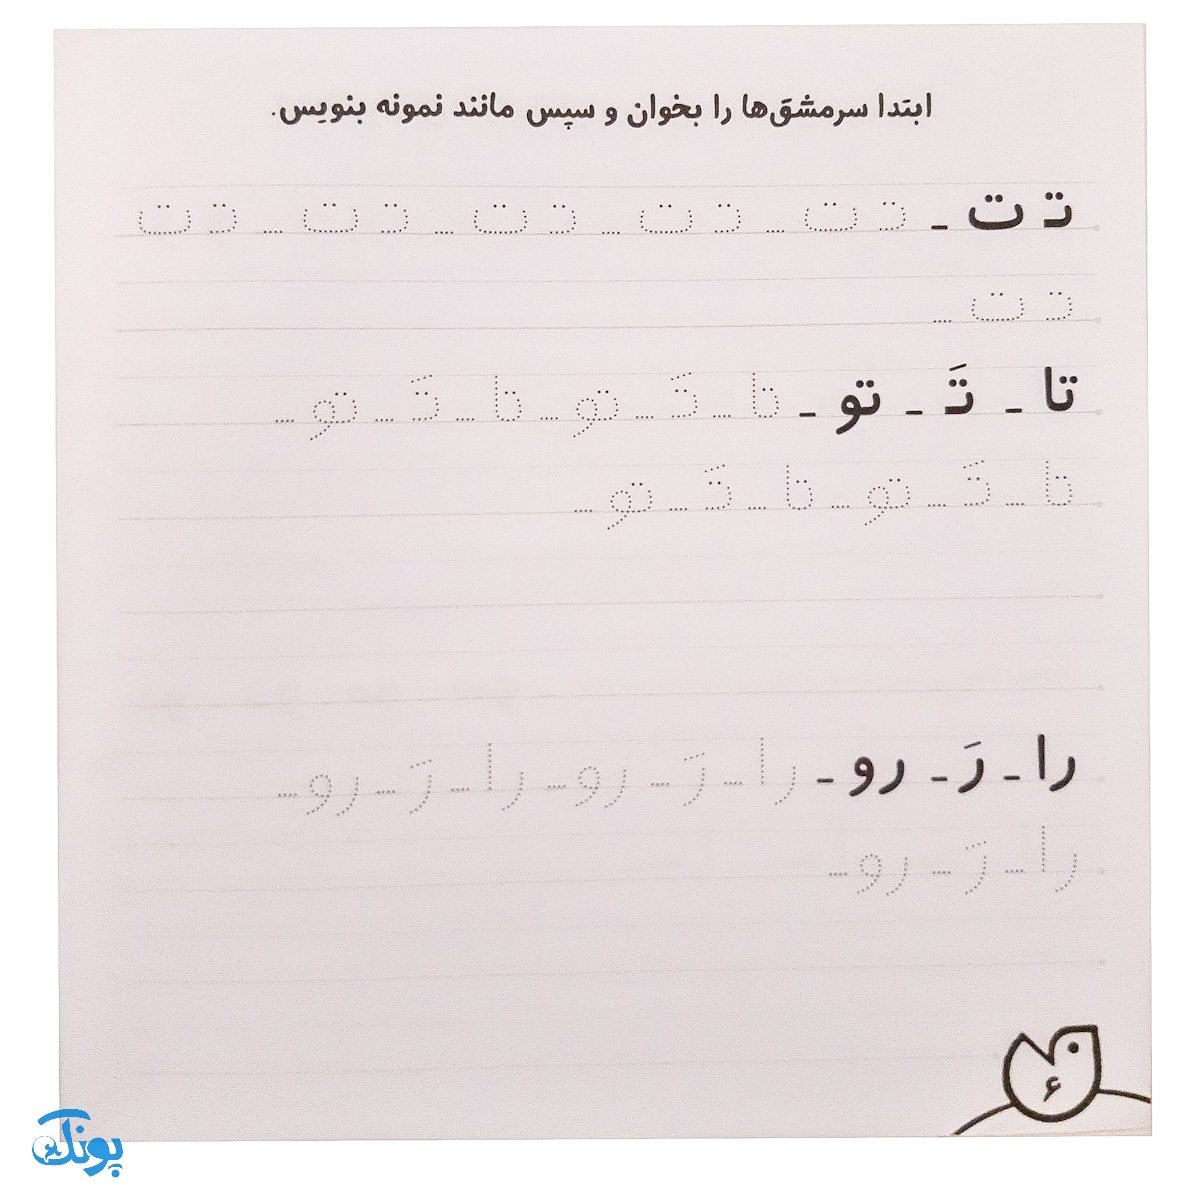 ابتدا سرمشق‌ها را بخوان و سپس مانند نمونه بنویس.
تـ ت ـ تـ ت ـ تـ ت ـ تـ ت ـ تـ ت ـ تـ ت
تـ ت ـ
تا ـ تَـ ـ تو ـ تا ـ تَـ ـ تو ـ تا ـ تَـ ـ تو ـ
تا ـ تَـ ـ تو ـ تا ـ تَـ ـ تو ـ
را ـ رَ ـ رو ـ را ـ رَ ـ رو ـ را ـ رَ ـ رو ـ
را ـ رَ ـ رو ـ
۶
پونک